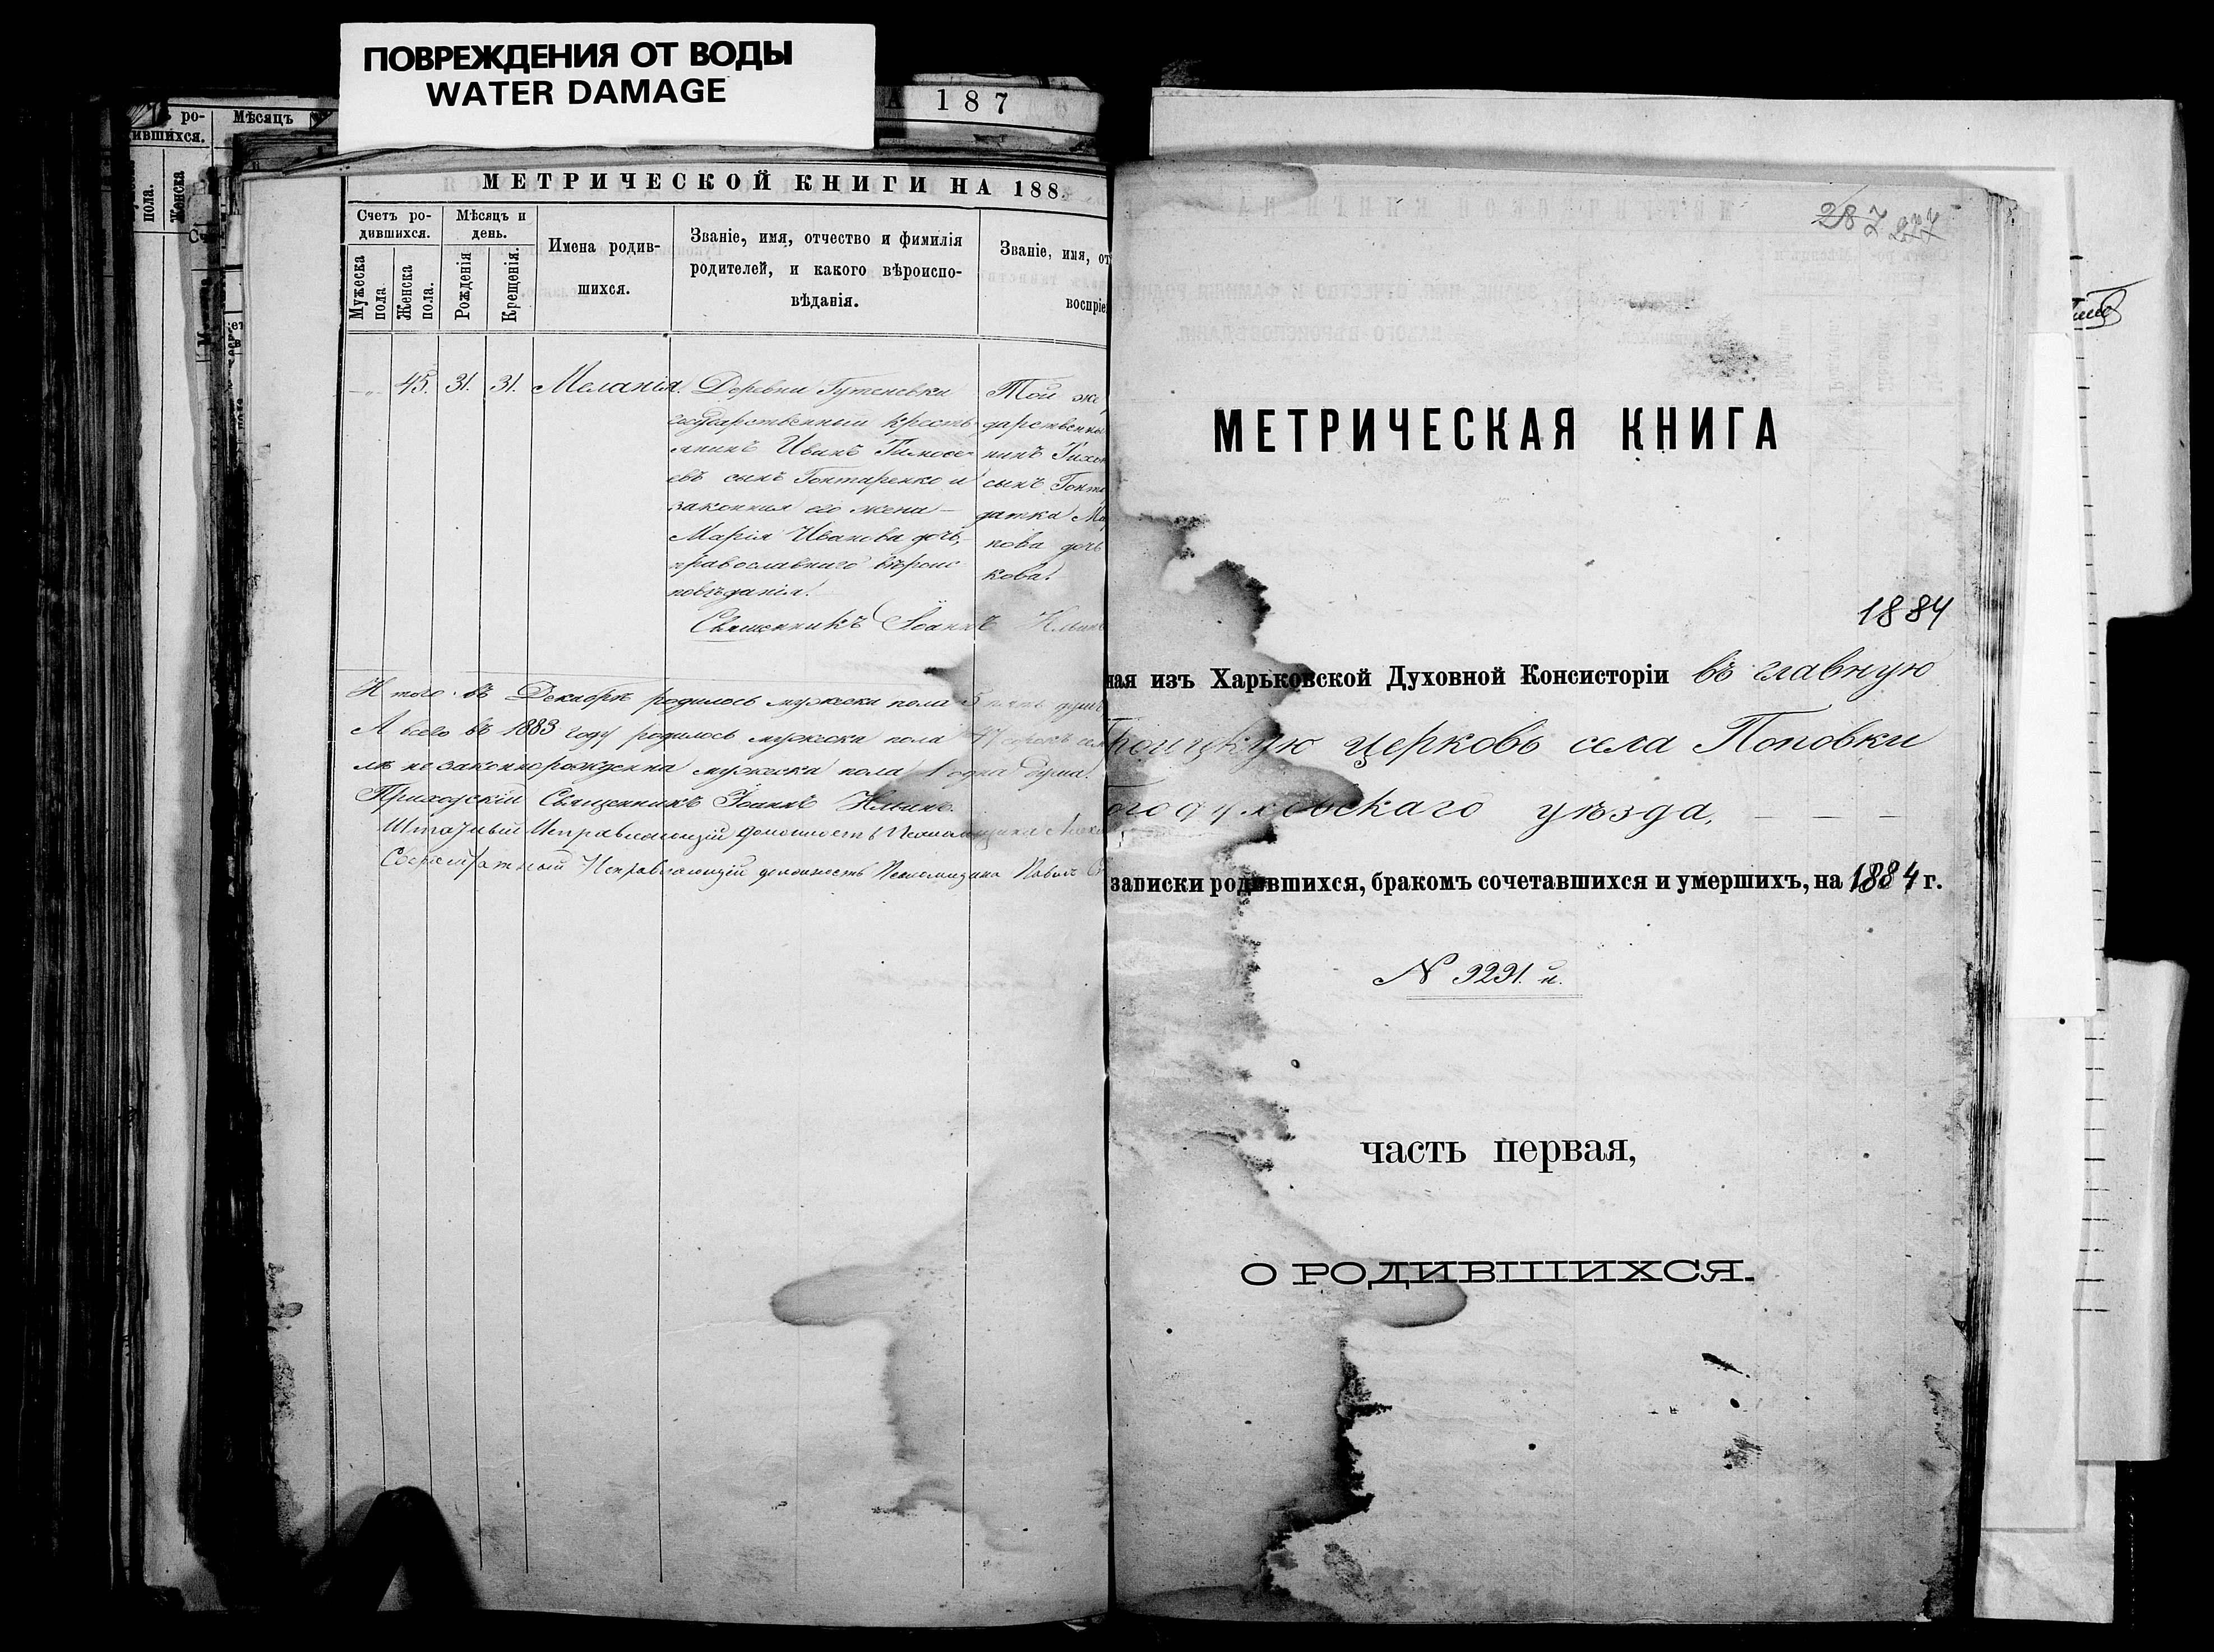 ПОВРЕЖДЕНИЯ ОТ ВОДЫ
WATER DAMAGE
А 187
ро- Мѣсяцъ
ившихся.
пола.
Женска
МЕТРИЧЕСКОЙ КНИГИ НА 188
Счетъ ро-
дившихся.
Мужеска
пола.
Женска
пола.
Мѣсяцъ и
день.
Рожденія
Крещенія.
Имена родив-
шихся.
Званіе, имя, отчество и фимилія
родителей, и какого вѣроиспо-
вѣданія.
Званіе, имя, от
воспріе
45. 31. 31. Меланія.
Деревни
государственный кресть-
янинъ Иванъ Тимоѳе-
евъ сынъ Гонтаренко и
законная его жена
Марія Иванова дочь,
православнаго вѣроис
повѣданія.
Той же
дарственны
нинъ
сынъ Гонта
датка Ма
нова дочь
кова.
Священникъ Іоаннъ
Итого въ Декабрѣ родилось мужеска пола 5 пять душъ
А всего въ 1883 году родилось мужеска пола 47 сорокъ сем
лѣ незаконнорожденна мужеска пола 1 одна душа.
Приходскій Священникъ Іоаннъ
Штатный Исправляющій должность Псаломщика
Сверхштатный Исправляющій должность Псаломщика Павелъ
287 277
МЕТРИЧЕСКАЯ КНИГА
1884
ная изъ Харьковской Духовной Консисторіи въ главную
Троицкую церковь села Поповки
Богодуховскаго уѣзда,
записки родившихся, бракомъ сочетавшихся и умершихъ, на 1884 г.
N 9291. й.
часть первая,
О РОДИВШИХСЯ.